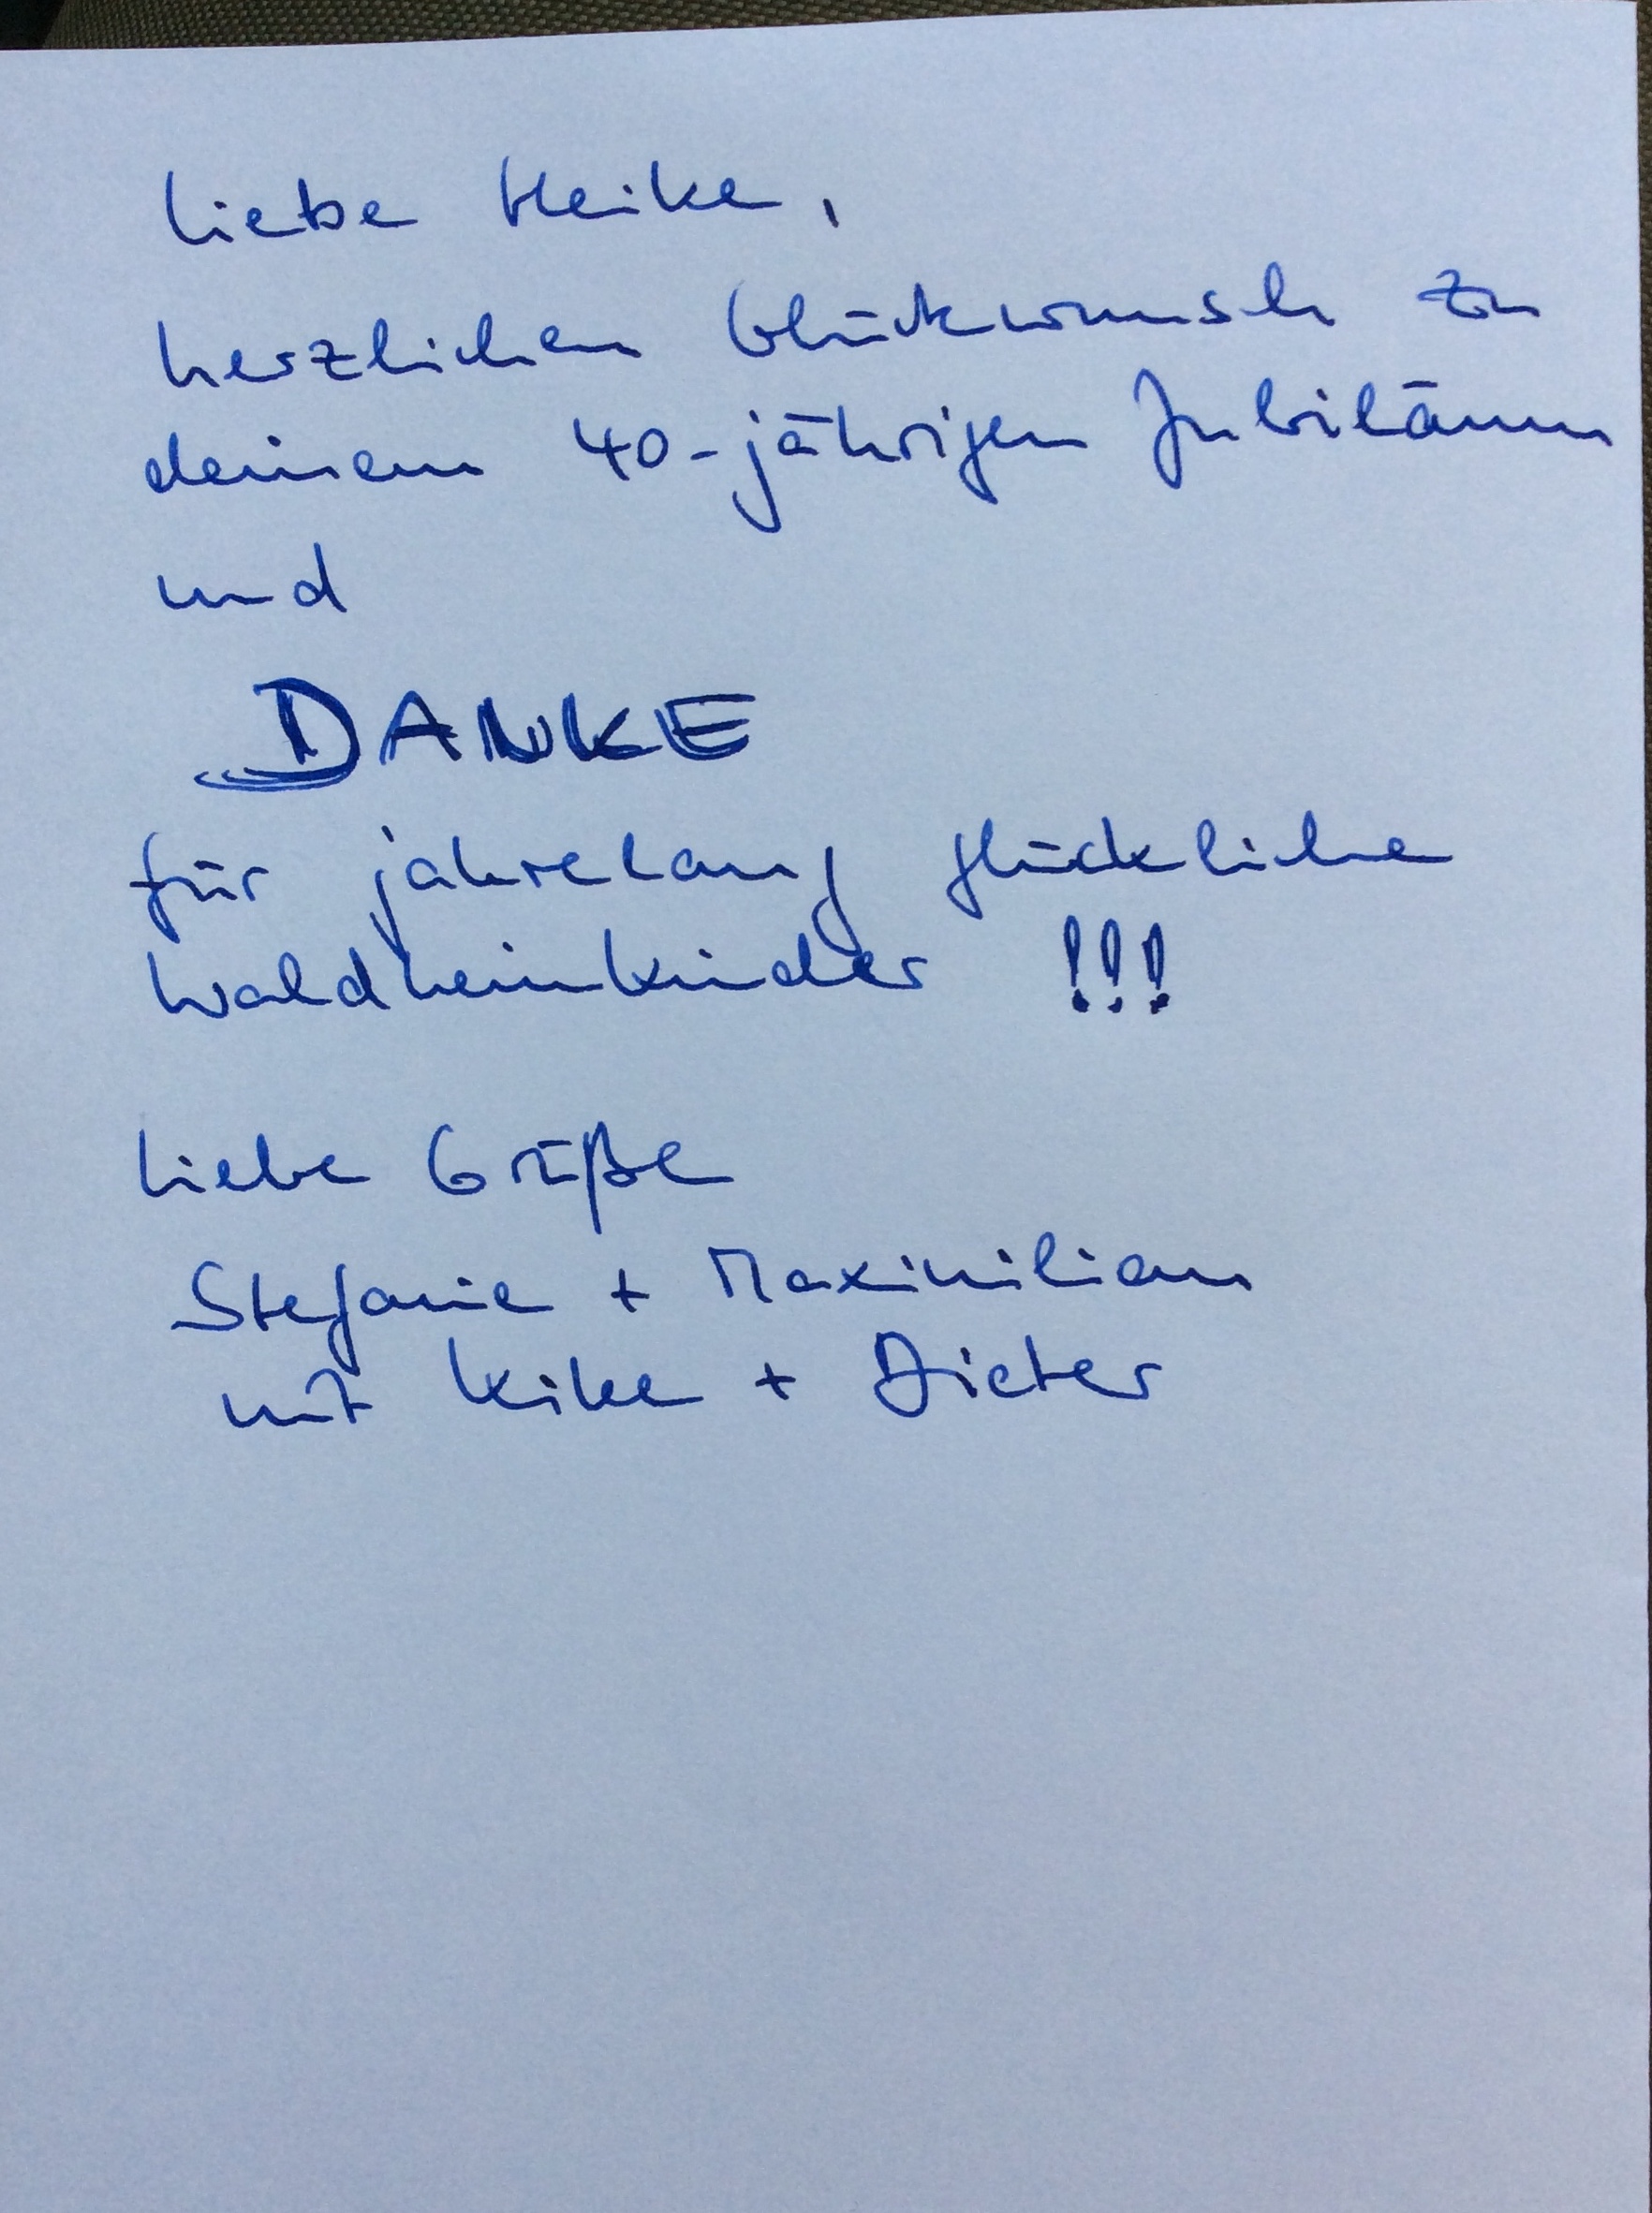 Liebe Heike,
herzlichen Glückwunsch zu
deinem 40-jährigen Jubiläum
und
DANKE
für jahrelang glückliche
Waldheimkinder !!!
Liebe Grüße
Stefanie + Maximilian
mit Kike + Dieter